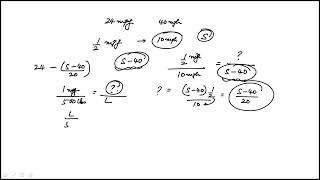 24 mpg 40 mph
1/2 mpg → 10 mph S
24 - (S-40)/20 S-40 (1/2 mpg)/(10 mph) = ?/(S-40)
1 mpg/500 lbs = ?/L ? = (S-40) 1/2 / 10 = (S-40)/20
L/5